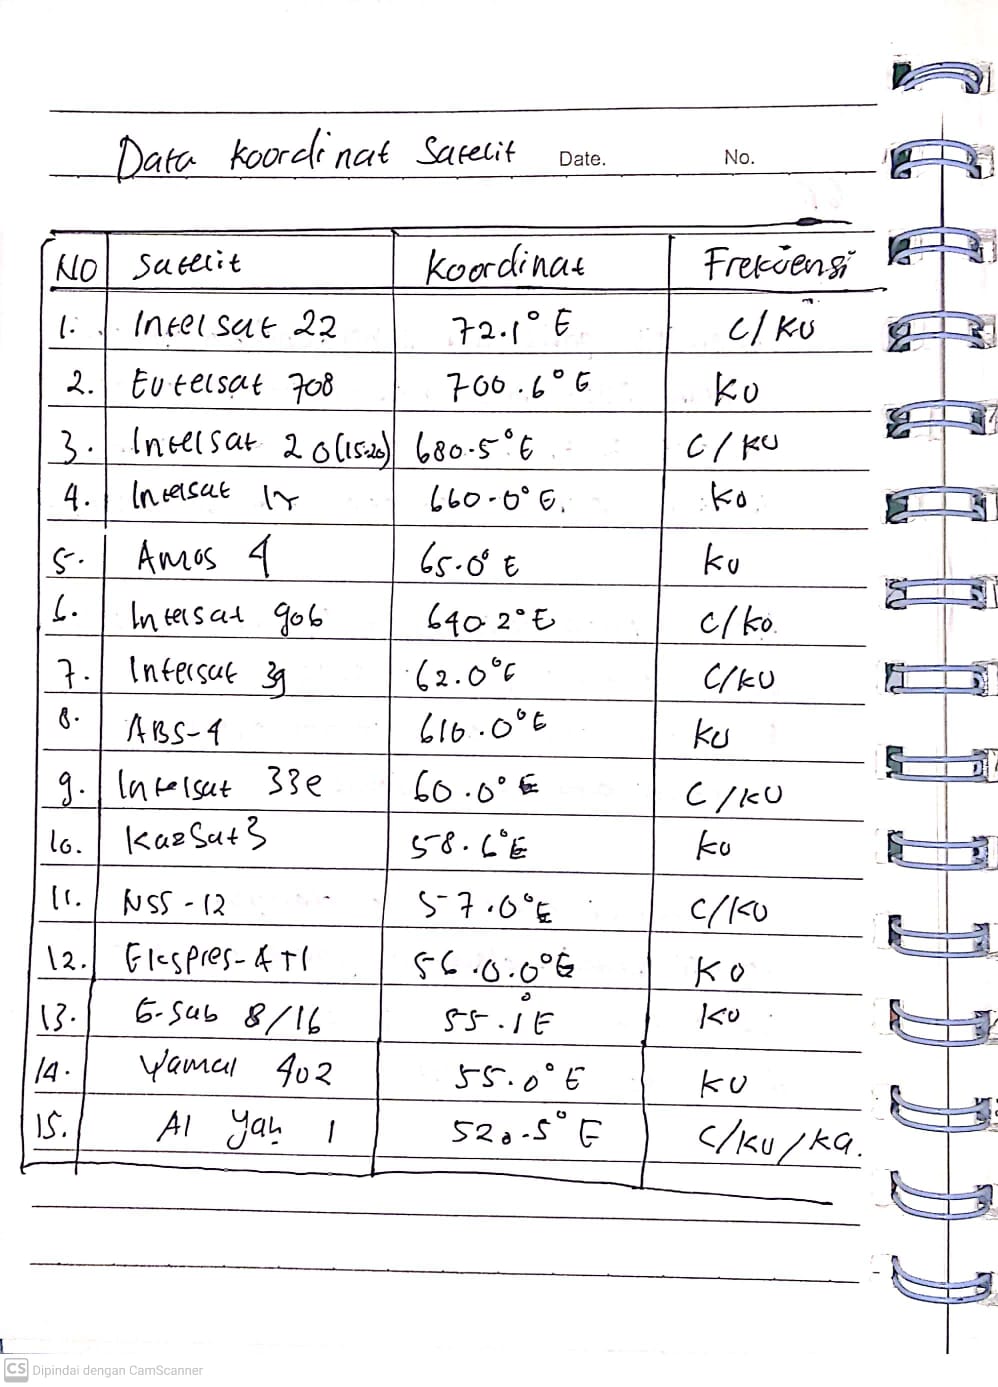 Data koordinat Satelit Date. No.
NO Satelit Koordinat Frekuensi
1. Intelsat 22 72.1° E C/KU
2. Eutelsat 708 700.6° E KU
3. Intelsat 20(15-20) 680.5° E C/KU
4. Intelsat 660.0° E. KU
5. Amos 4 65.0° E KU
6. Intelsat 906 640.2° E C/KU.
7. Intersat 39 62.0° E C/KU
8. ABS-4 616.0° E KU
9. Intelsat 33e 60.0° E C/KU
10. KazSat3 58.6° E KU
11. NSS-12 57.0° E C/KU
12. Ekspres-AT1 56.0.0° E KU
13. 8/16 55.1° E KU
14. Yamal 402 55.0° E KU
15. Al Yah 1 520.5° E C/KU/Ka.
CS Dipindai dengan CamScanner